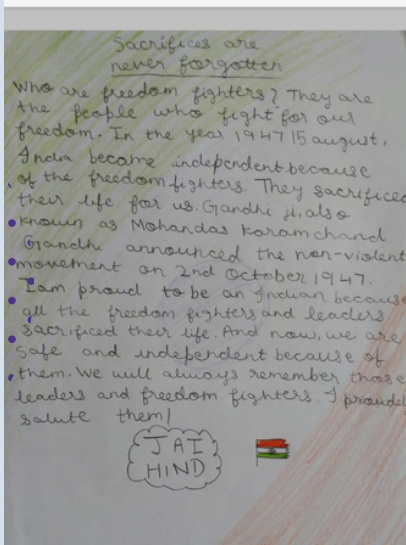 Sacrifices are
never forgotten
Who are freedom fighters? They are
the people who fight for our
freedom. In the year 1947 15 august,
India became independent because
of the freedom fighters. They sacrificed
their life for us. Gandhi ji, also
known as Mohandas Karamchand
Gandhi announced the non-violent
movement on 2nd October 1947.
I am proud to be an Indian because
all the freedom fighters and leaders
sacrificed their life. And now, we are
safe and independent because of
them. We will always remember those
leaders and freedom fighters. I proudl
salute them!
JAI
HIND